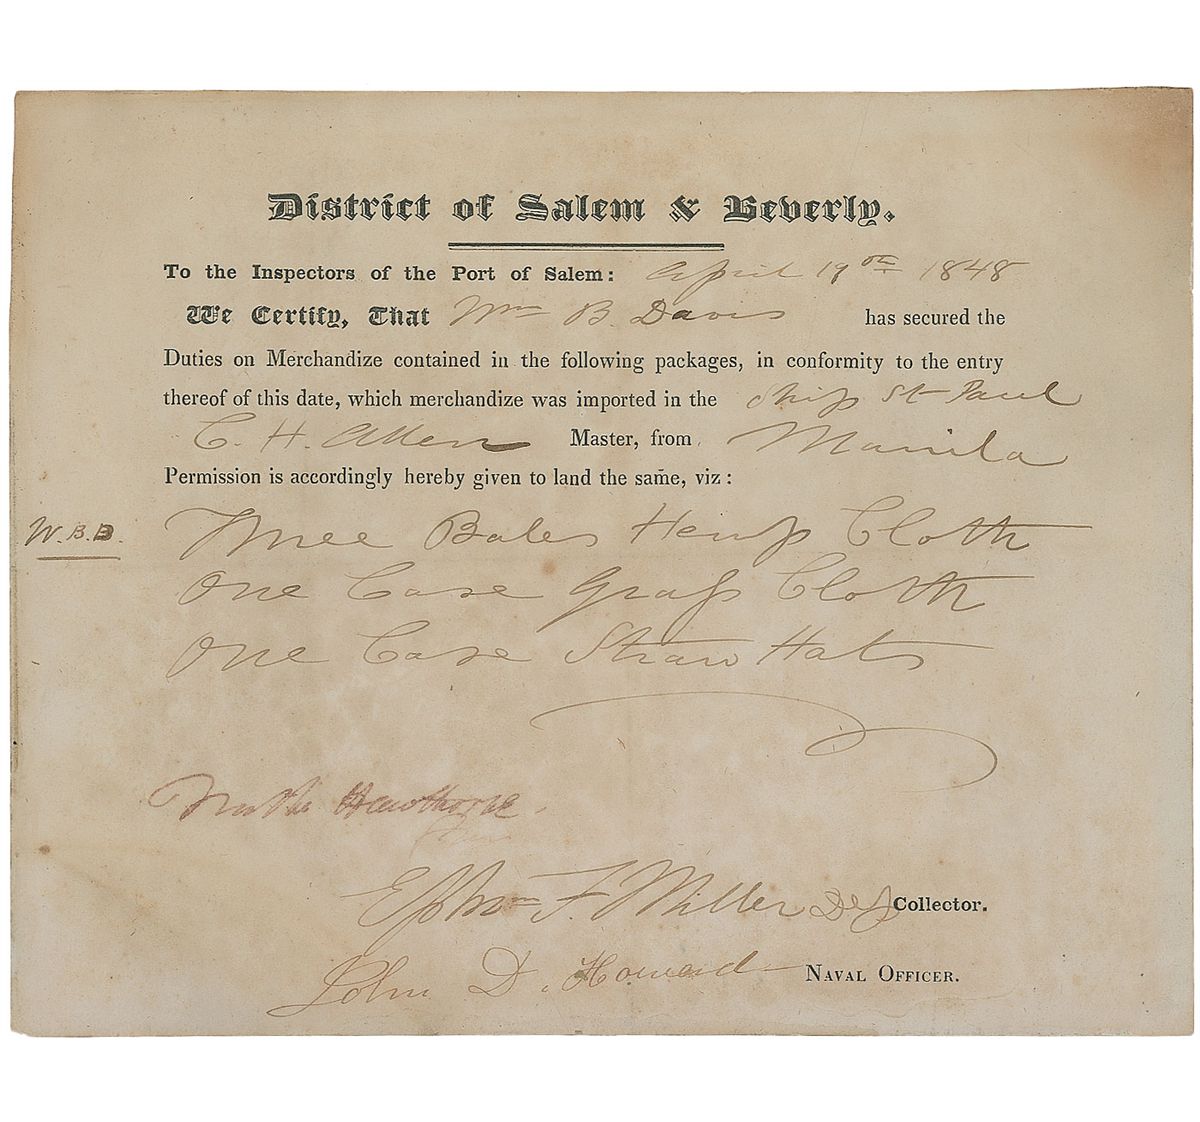 District of Salem & Beverly.
To the Inspectors of the Port of Salem: April 19th 1848
We Certify, That Wm B. Davis has secured the
Duties on Merchandize contained in the following packages, in conformity to the entry
thereof of this date, which merchandize was imported in the Ship St Paul
C. H. Allen Master, from Manila
Permission is accordingly hereby given to land the same, viz:
W.B.D. Three Bales Hemp Cloth
One Case Grass Cloth
One Case Straw Hats
Nath Hawthorne.
Ephm F. Miller Dep Collector.
John D. Howard Naval Officer.